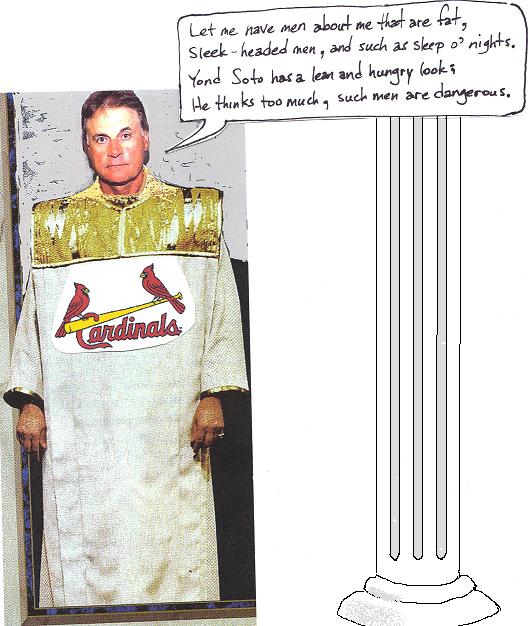 Let me have men about me that are fat,
Sleek-headed men, and such as sleep o' nights.
Yond Soto has a lean and hungry look;
He thinks too much, such men are dangerous.
Cardinals